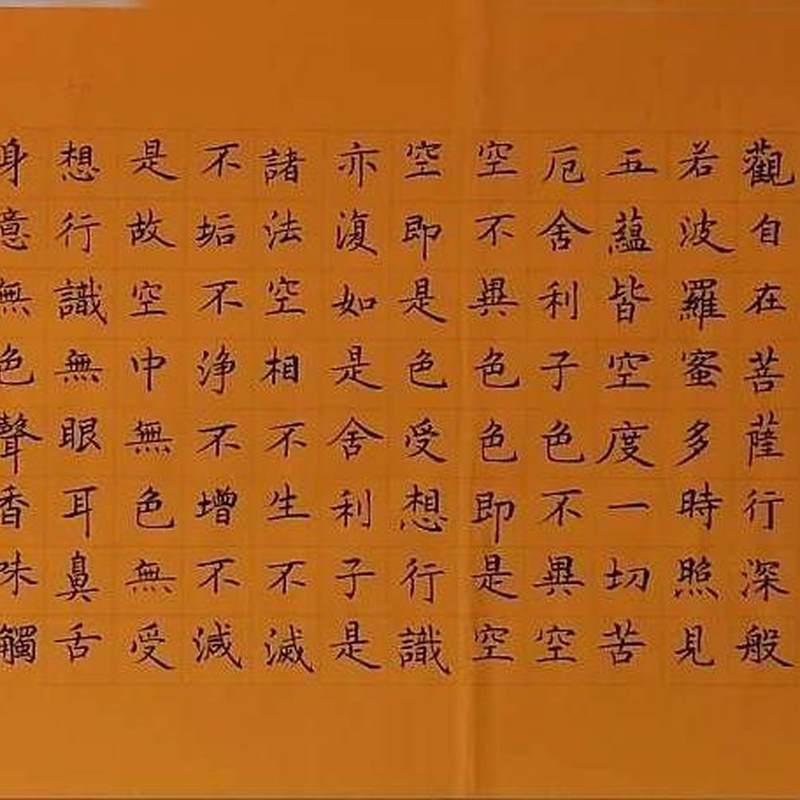 觀自在菩薩行深般
若波羅蜜多時照見
五蘊皆空度一切苦
厄舍利子色不異空
空不異色色即是空
空即是色受想行識
亦復如是舍利子是
諸法空相不生不滅
不垢不淨不增不減
是故空中無色無受
想行識無眼耳鼻舌
身意無色聲香味觸